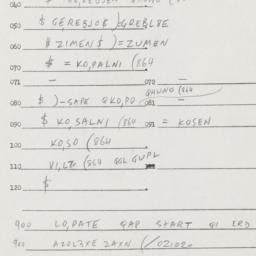 040
050 $ GEREBJO$ )=GREBLBE
060 $ ZIMEN$ )=ZUMEN
070 $ = KO,PALNI (864
071 — 072 —
080 $ )-SAPE QKO,PO 081 QHUNO (864
090 $ KO,SALNI (864 091 = KOSEN
100 KO,SO (864
110 VI,LTI (864 QQL GUPL
120 $
900 LO,PATE QAP START QI ERD
910 AZOL3XE ZAXN (/021020